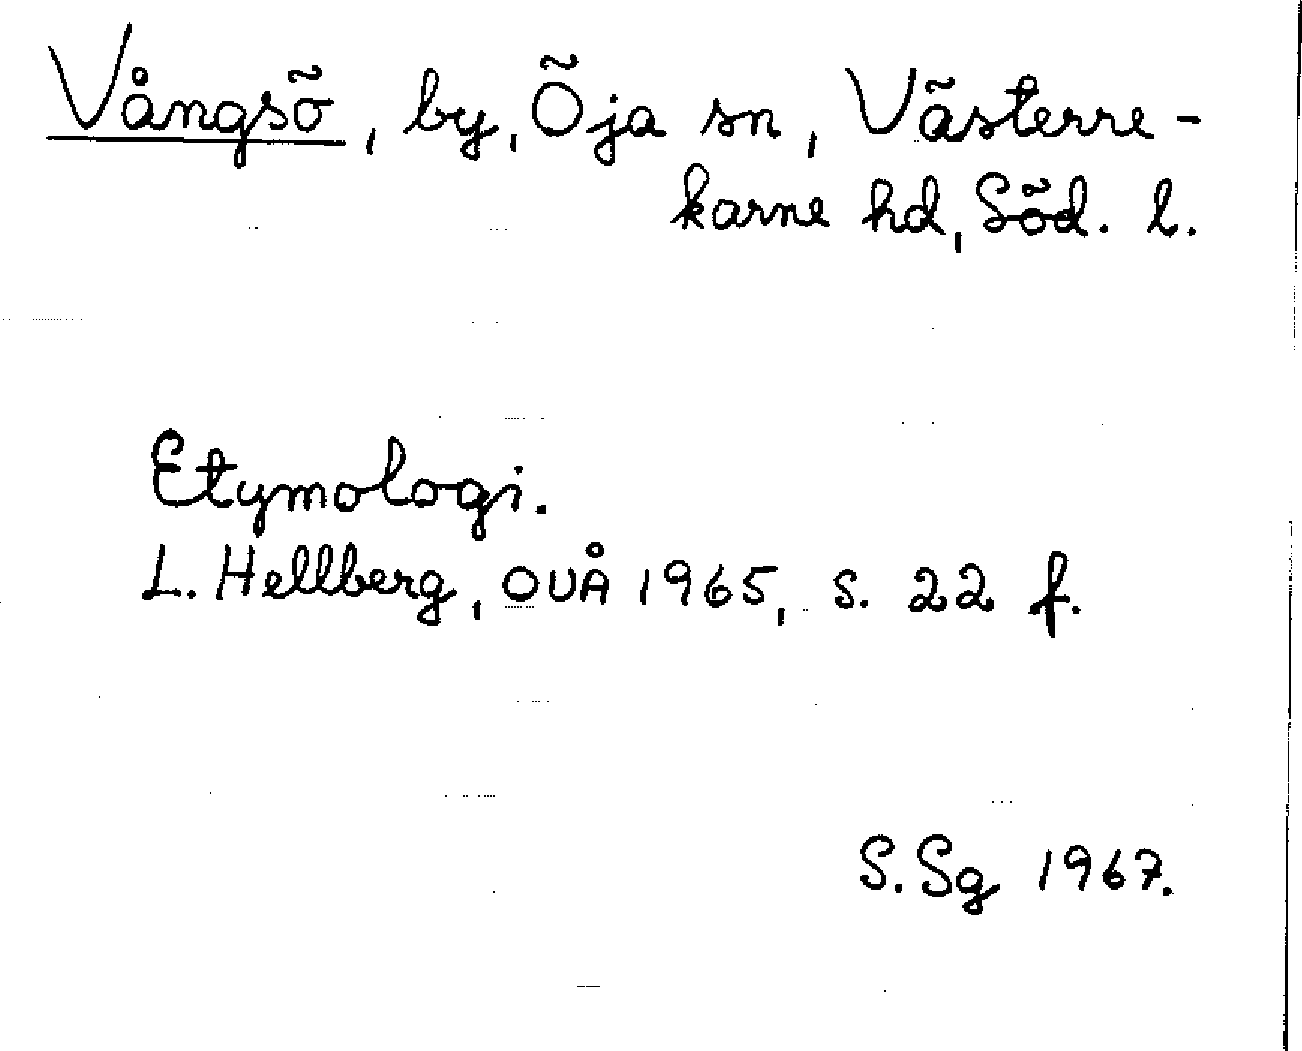 Vångsö, by, Öja sn, Västerre-
karne hd, Söd. l.
Etymologi.
L. Hellberg, OUÅ 1965, s. 22 f.
S. Sg 1967.